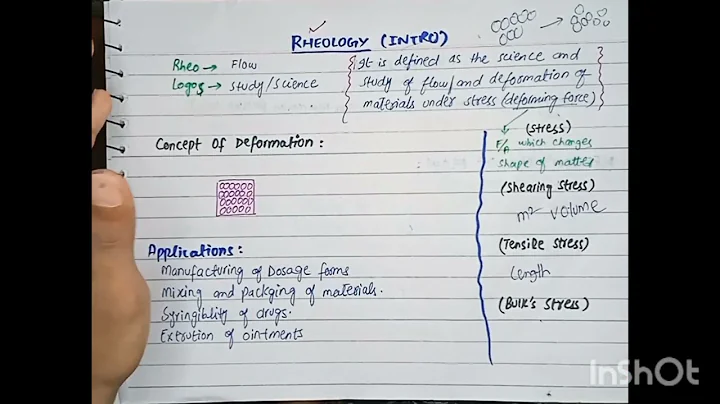 RHEOLOGY (INTRO)
Rheo → Flow
Logos → Study/Science
It is defined as the science and
study of flow/and deformation of
materials under stress (deforming force)
Concept Of Deformation :
(Stress)
F/A which changes
shape of matter
(Shearing Stress)
m² volume
(Tensile Stress)
Length
(Bulk's Stress)
Applications :
Manufacturing of Dosage forms
Mixing and packging of materials.
Syringiblity of drugs.
Extrution of ointments
InShOt